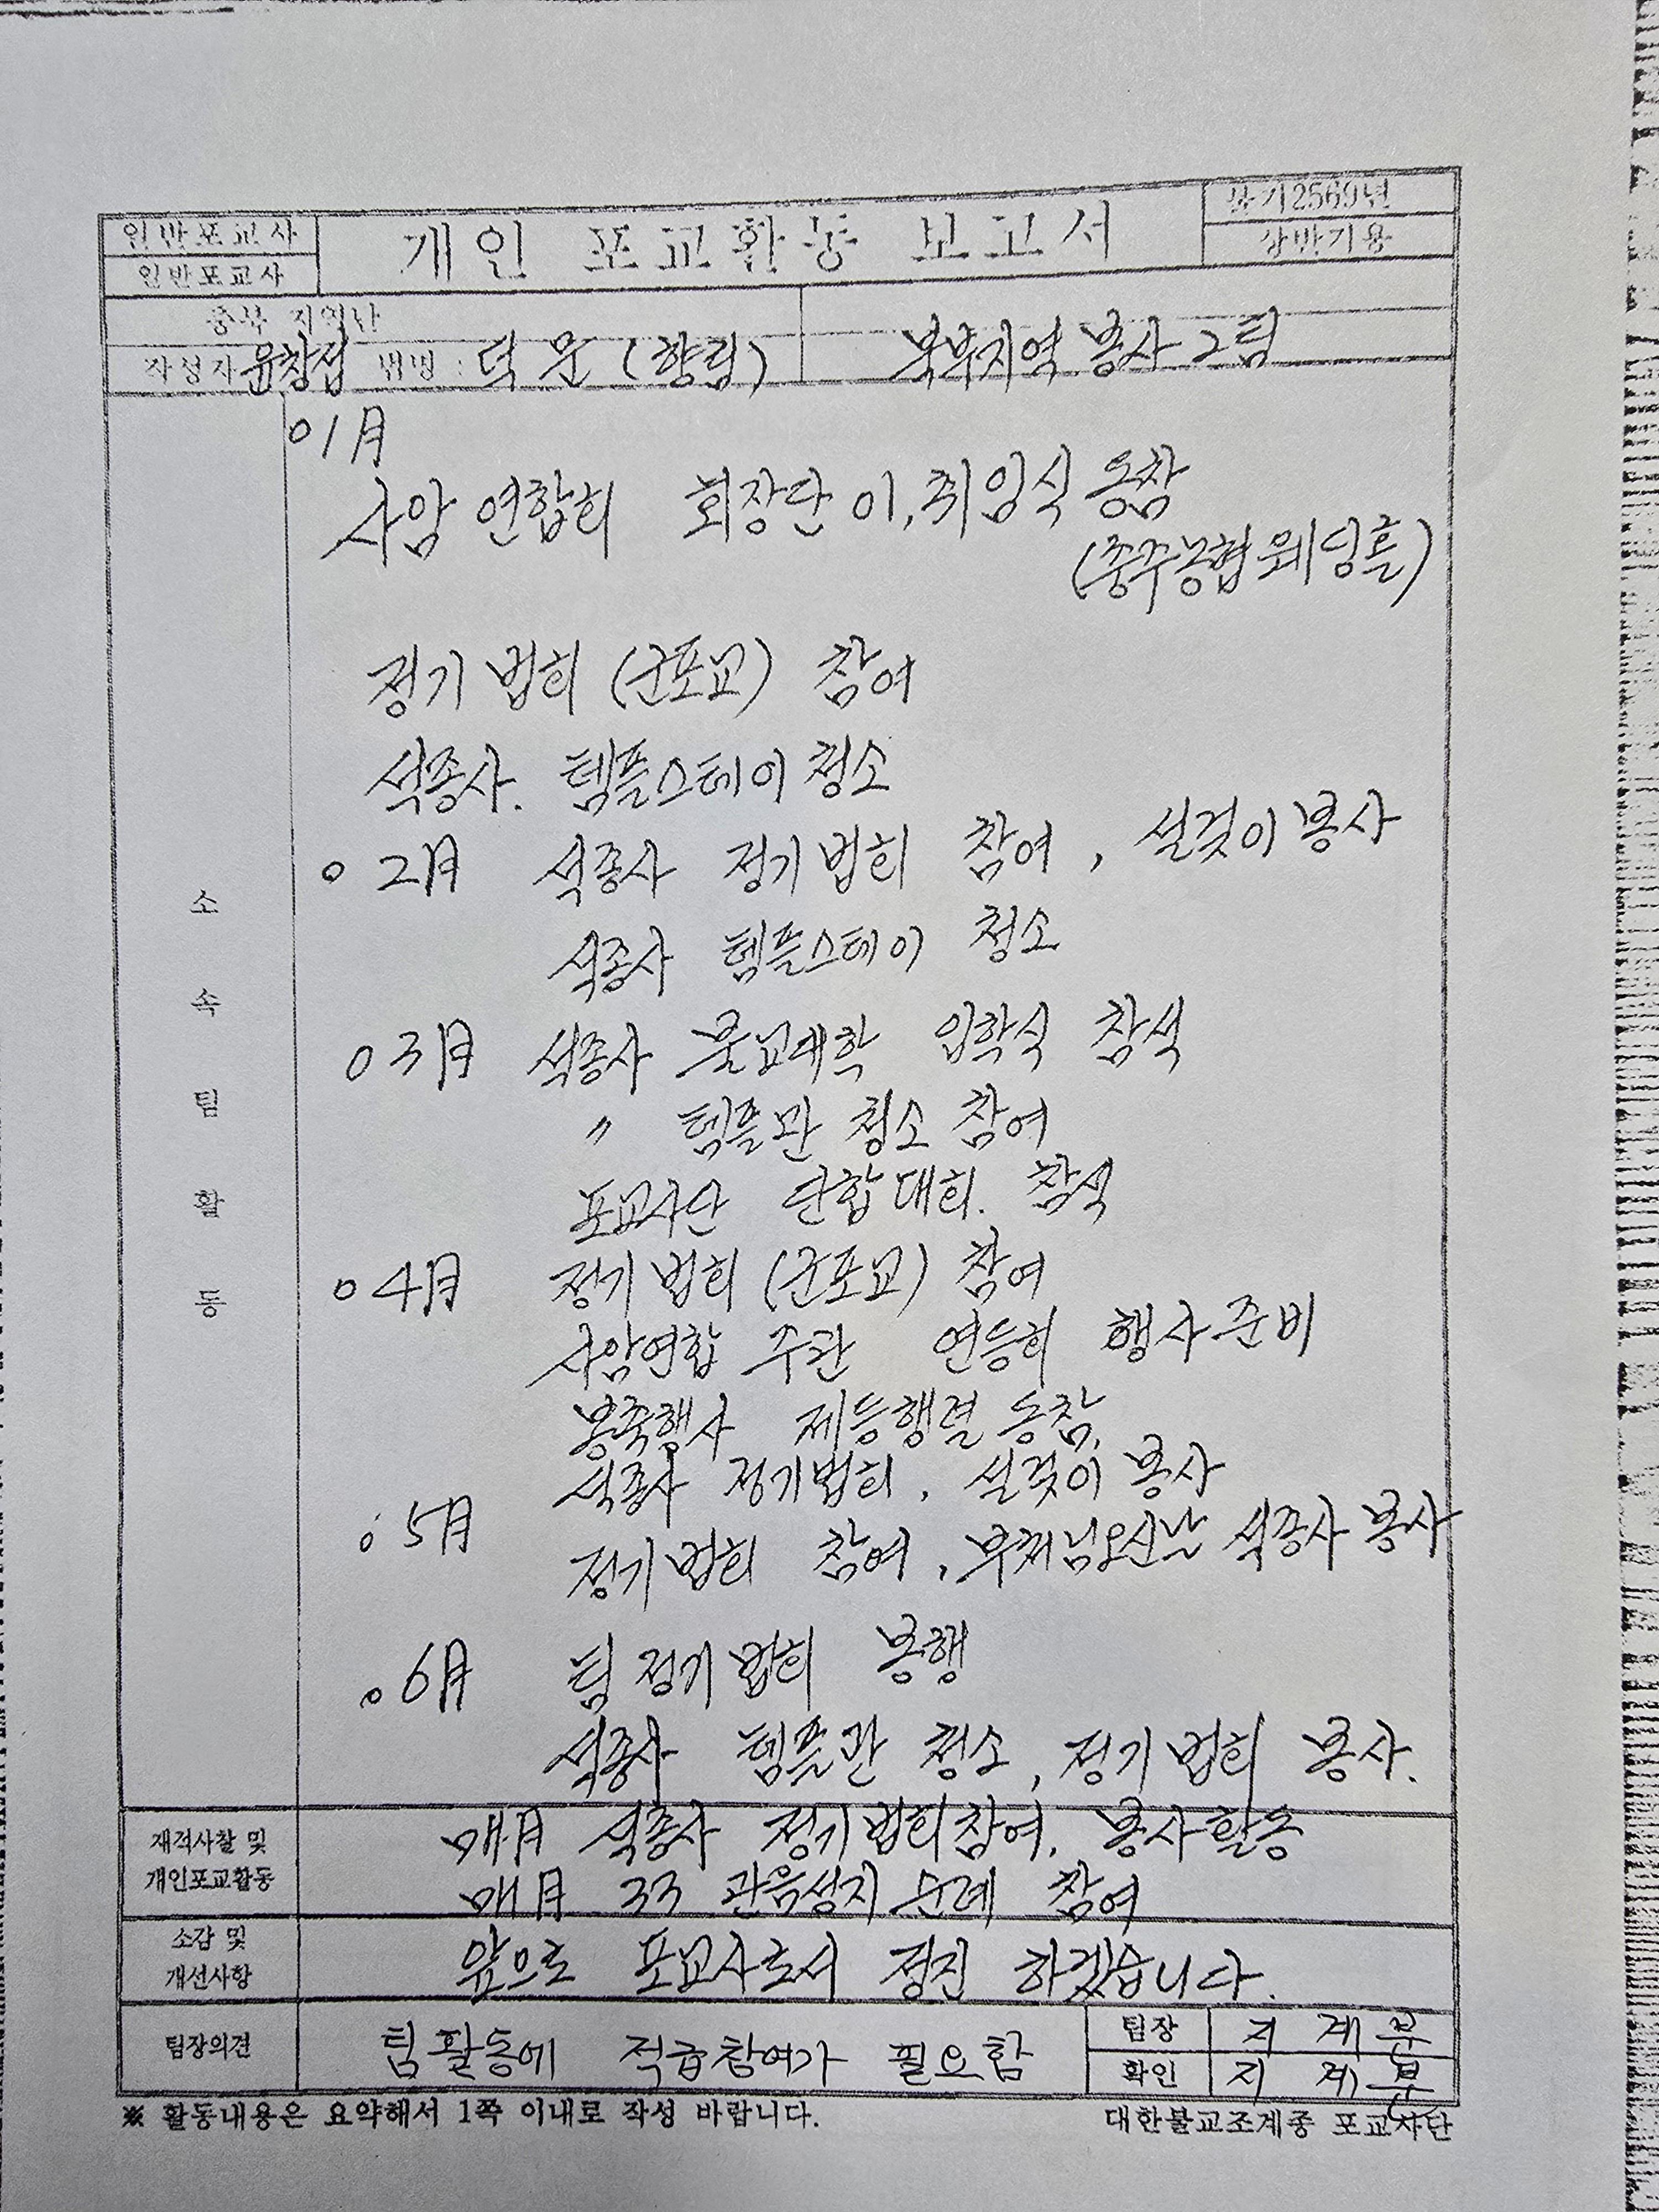 일반포교사
일반포교사
개인 포교활동 보고서
불기2569년
상반기용
충북 지역단
작성자 윤창섭 법명 : 덕운 (향림)
북부지역 봉사 2팀
소속팀활동
○ 1月
사암 연합회 회장단 이,취임식 동참
(충주농협 웨딩홀)
정기 법회 (군포교) 참여
석종사. 템플스테이 청소
○ 2月 석종사 정기 법회 참여, 설겆이 봉사
석종사 템플스테이 청소
○ 3月 석종사 불교대학 입학식 참석
〃 템플관 청소 참여
포교사단 단합대회. 참석
○ 4月 정기 법회 (군포교) 참여
사암연합 주관 연등회 행사 준비
봉축행사 제등행렬 동참.
석종사 정기법회, 설겆이 봉사
○ 5月
정기 법회 참여, 부처님오신날 석종사 봉사
○ 6月 팀 정기 법회 봉행
석종사 템플관 청소, 정기 법회 봉사.
재적사찰 및
개인포교활동
매月 석종사 정기법회참여. 봉사활동
매月 33 관음성지 순례 참여
소감 및
개선사항
앞으로 포교사로서 정진 하겠습니다.
팀장의견
팀 활동에 적급참여가 필요함
팀장 지 계
확인 지 계
※ 활동내용은 요약해서 1쪽 이내로 작성 바랍니다.
대한불교조계종 포교사단